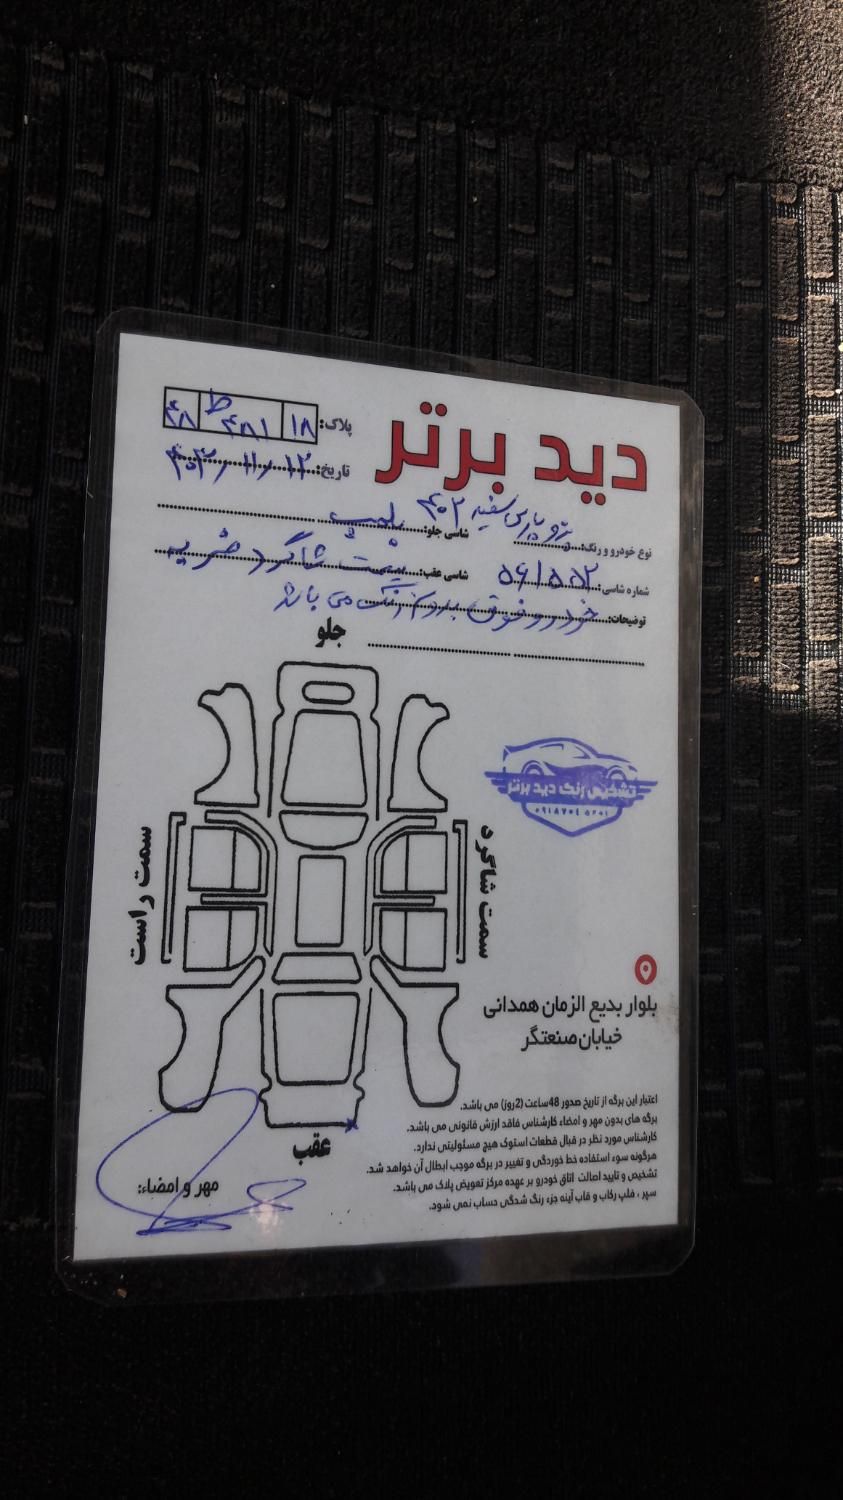 دید برتر
پلاک: ۱۸ ۴۸۱ ط ۴۸
تاریخ: ۴۰۳/۱۱/۱۲
نوع خودرو و رنگ: پژو پارس سفید ۴۰۲
شاسی جلو: پلمپ
شماره شاسی: ۵۶۱۵۵۲
شاسی عقب: سمت شاگرد ضربه
توضیحات: خودرو فوق بدون رنگ می باشد
جلو
سمت راست
سمت شاگرد
تشخیص رنگ دید برتر
بلوار بدیع الزمان همدانی
خیابان صنعتگر
عقب
اعتبار این برگه از تاریخ صدور 48ساعت (2روز) می باشد.
برگه های بدون مهر و امضاء کارشناس فاقد ارزش قانونی می باشد.
کارشناس مورد نظر در قبال قطعات استوک هیچ مسئولیتی ندارد.
هرگونه سوء استفاده خط خوردگی و تغییر در برگه موجب ابطال آن خواهد شد.
تشخیص و تایید اصالت اتاق خودرو بر عهده مرکز تعویض پلاک می باشد.
سپر ، فلپ رکاب و قاب آینه جزء رنگ شدگی حساب نمی شود.
مهر و امضاء: